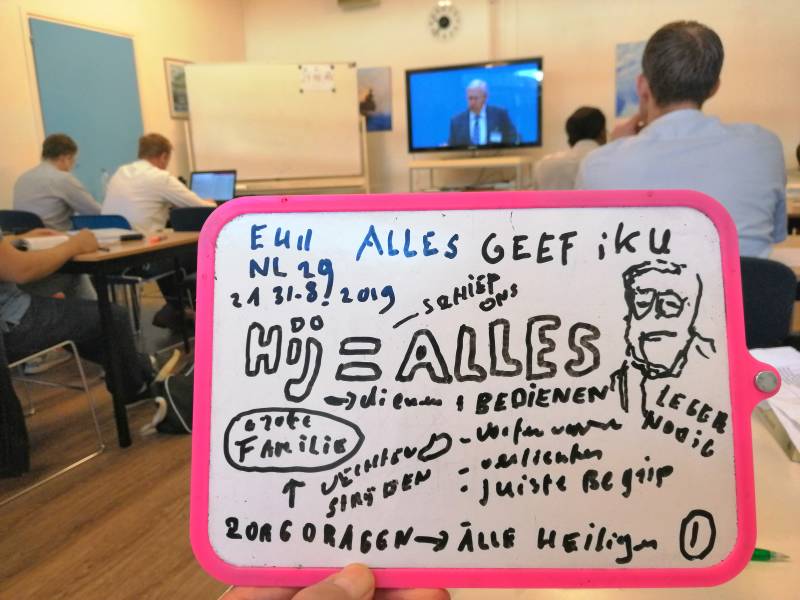 E4II ALLES GEEF iK U
NL 29
21 31-8.2019
SCHIEP
ONS
Hij = ALLES
→ dienen + BEDIENEN
LEGER
NODIG
GROTE
FAMILIE
↑ VECHTEN
STRIJDEN
-
- verlichten
- juiste Begrip
ZORGDRAGEN → ALLE Heiligen 1